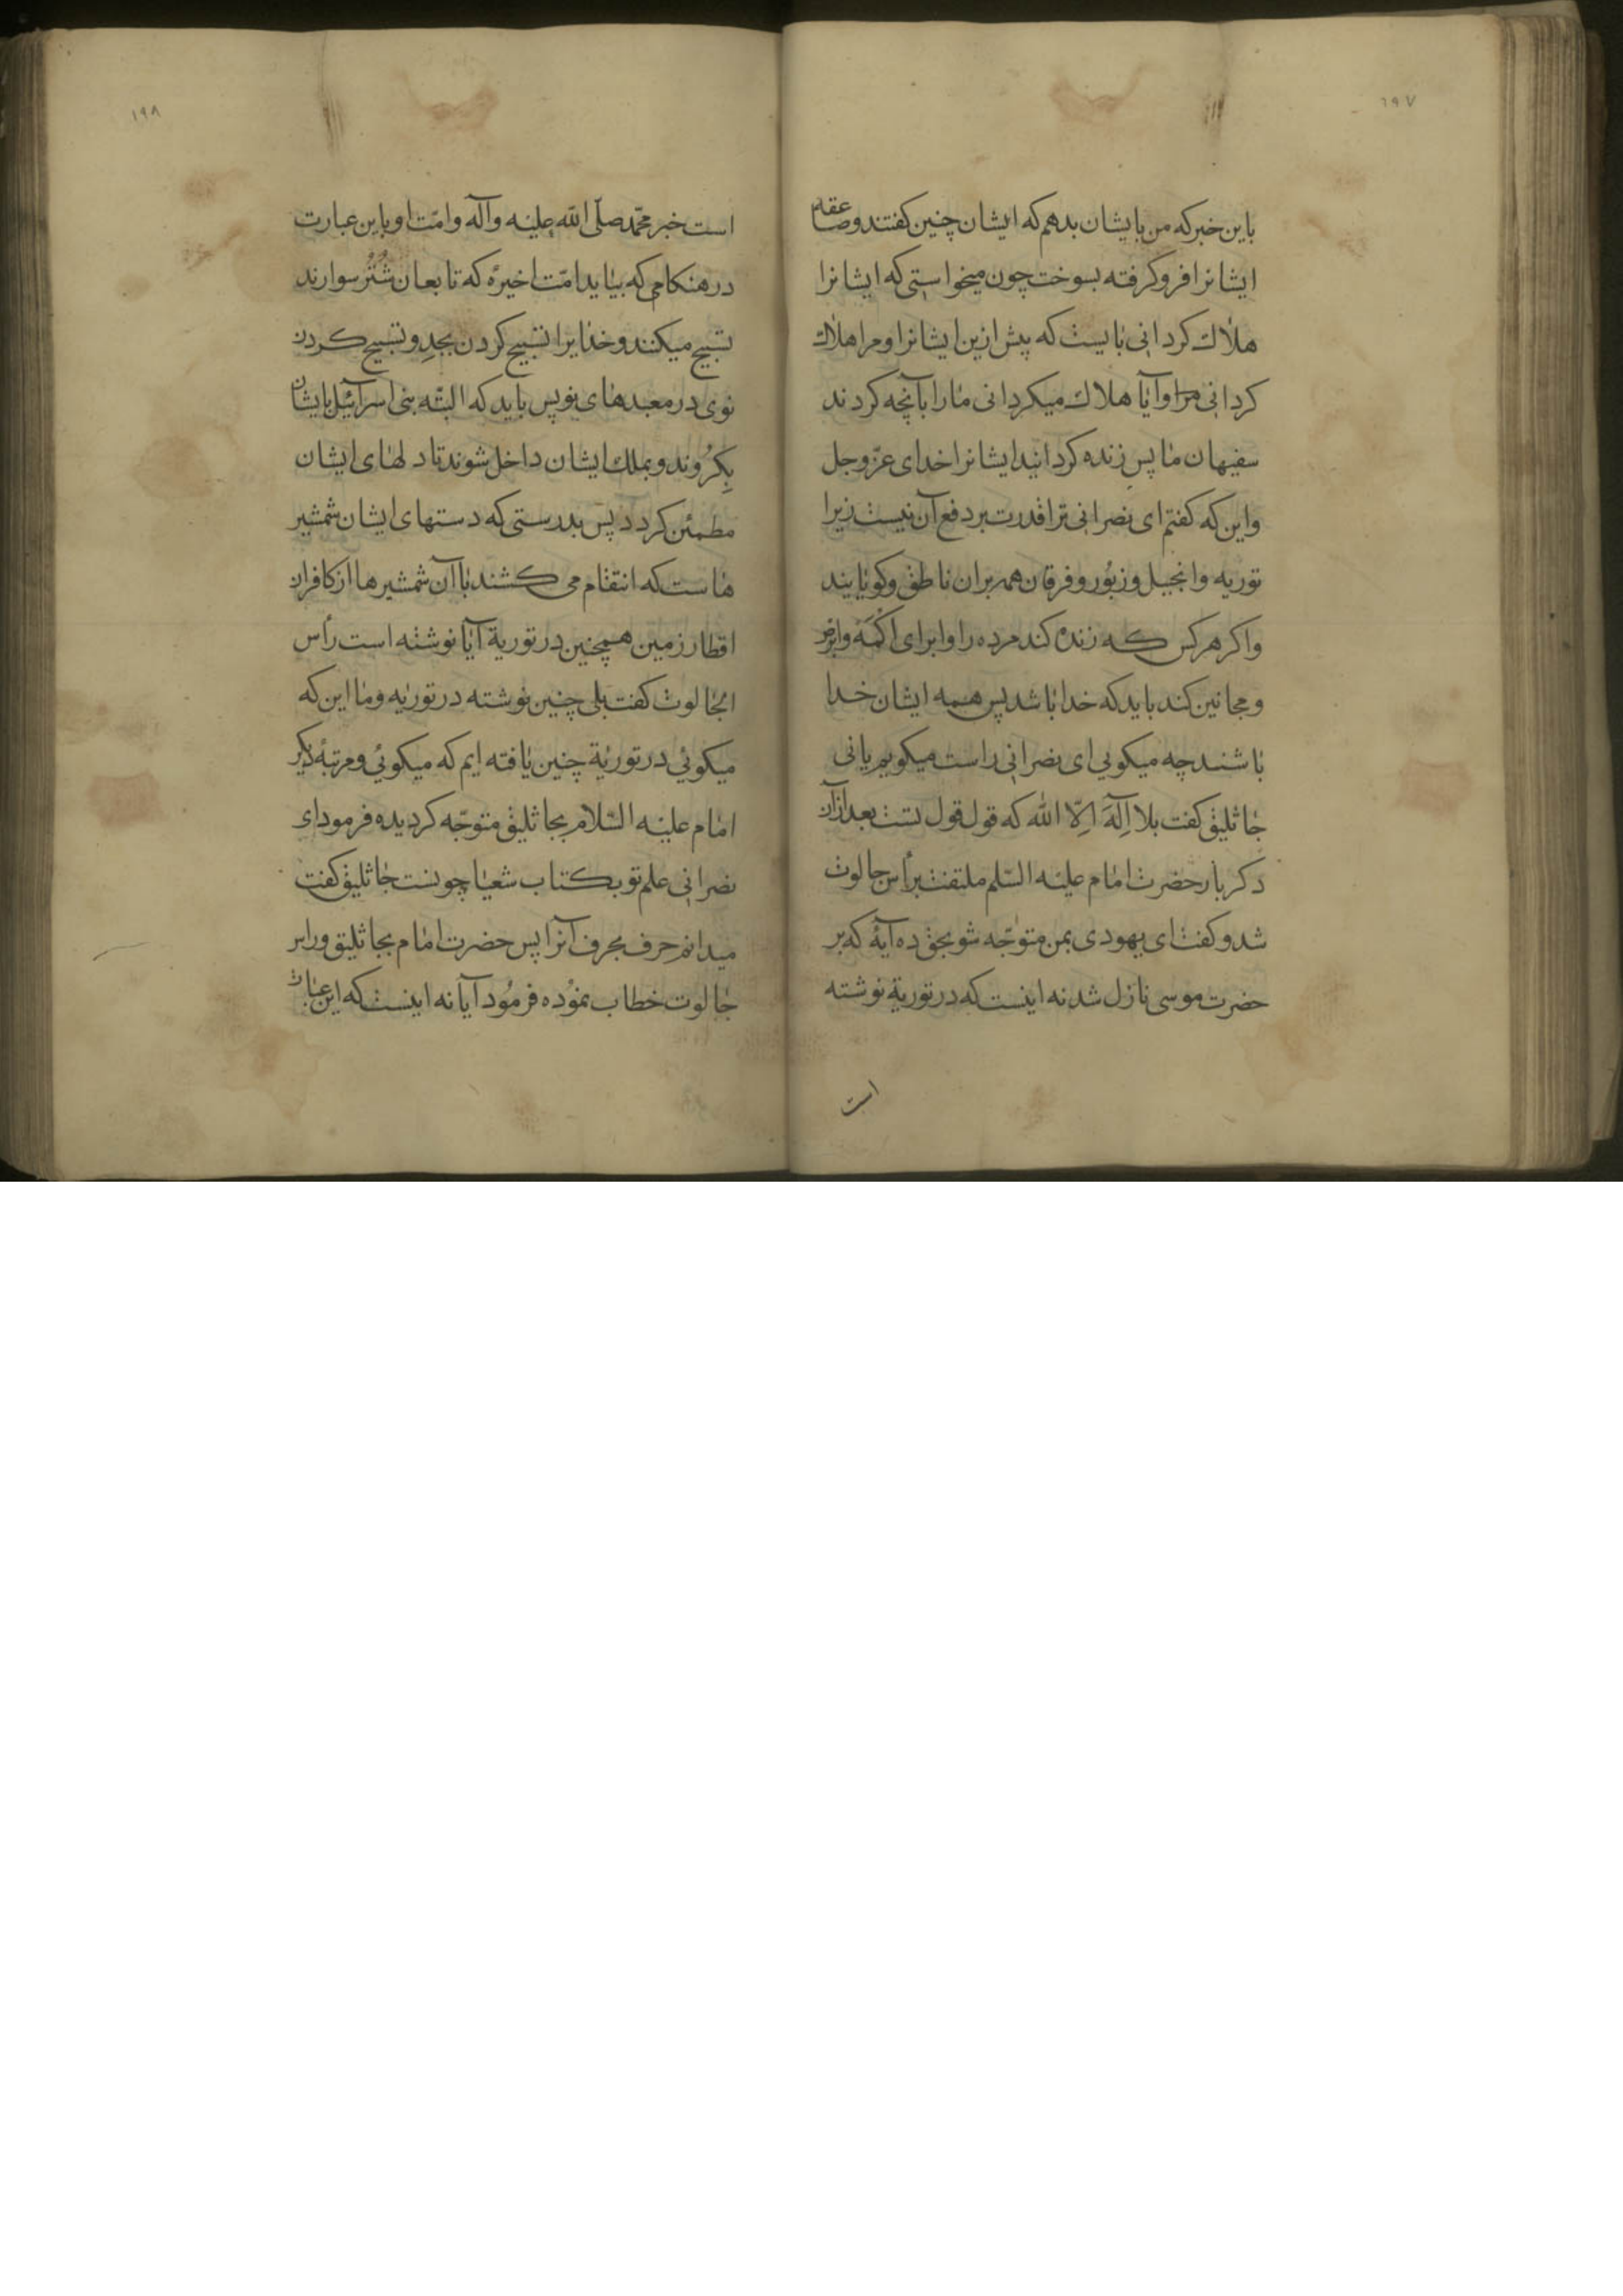 ۱۹۷
باین خبر که من بایشان بدهم که ایشان چنین کفتند و صاعقه
ایشانرا فرو کرفته بسوخت چون میخواستی که ایشانرا
هلاك کردانی بایست که پیش ازین ایشانرا و مرا هلاك
کردانی مرا و آیا هلاك میکردانی ما را بآنچه کردند
سفیهان ما پس زنده کردانید ایشانرا خدای عزّ و جل
و این که کفتم ای نصرانی ترا قدرت بر دفع آن نیست زیرا
توریه و انجیل و زبُور و فرقان همه بران ناطق و کویایند
و اکر هر کس که زنده کند مرده را و ابرای اکْمَه و ابرص
و مجانین کند باید که خدا باشد پس همه ایشان خدا
باشند چه میکویی ای نصرانی راست میکویم یا نی
جاثلیق کفت بلا اِلٓهَ اِلّا الله که قول قول تست بعد ازآن
دکر بار حضرت امام علیه السّلم ملتفت برأس جالوت
شد و کفت ای یهودی بمن متوجّه شو بحق ده آیهٔ که بر
حضرت موسی نازل شد نه اینست که در توریة نوشته
است
۱۹۸
است خبر محمّد صلّی الله علیه و آله و امّت او باین عبارت
در هنکامی که بیاید امّت اخیرهٔ که تابعان شُتُر سوارند
تسبیح میکنند و خدایرا تسبیح کردن بجدِ و تسبیح کردن
نوی در معبدهای نو پس باید که البتّه بنی اسرآئیل بایشان
بِکرُوند و بملك ایشان داخل شوند تا دلهای ایشان
مطمئن کردد پس بدرستی که دستهای ایشان شمشیر
هاست که انتقام می کشند باآن شمشیرها از کافران
اقطار زمین همچنین در توریة آیا نوشته است رأس
الجالوت کفت بلی چنین نوشته در توریه و ما این که
میکوئي در توریة چنین یافته ایم که میکوئي و مرتبهٔ دیکر
امام علیه السّلام بجاثلیق متوجّه کردیده فرمود ای
نصرانی علم تو بکتاب شعیا چونست جاثلیق کفت
میدانم حرف بحرف آنرا پس حضرت امام بجاثلیق و راس
جالوت خطاب نموُده فرموُد آیا نه اینست که این عبارت